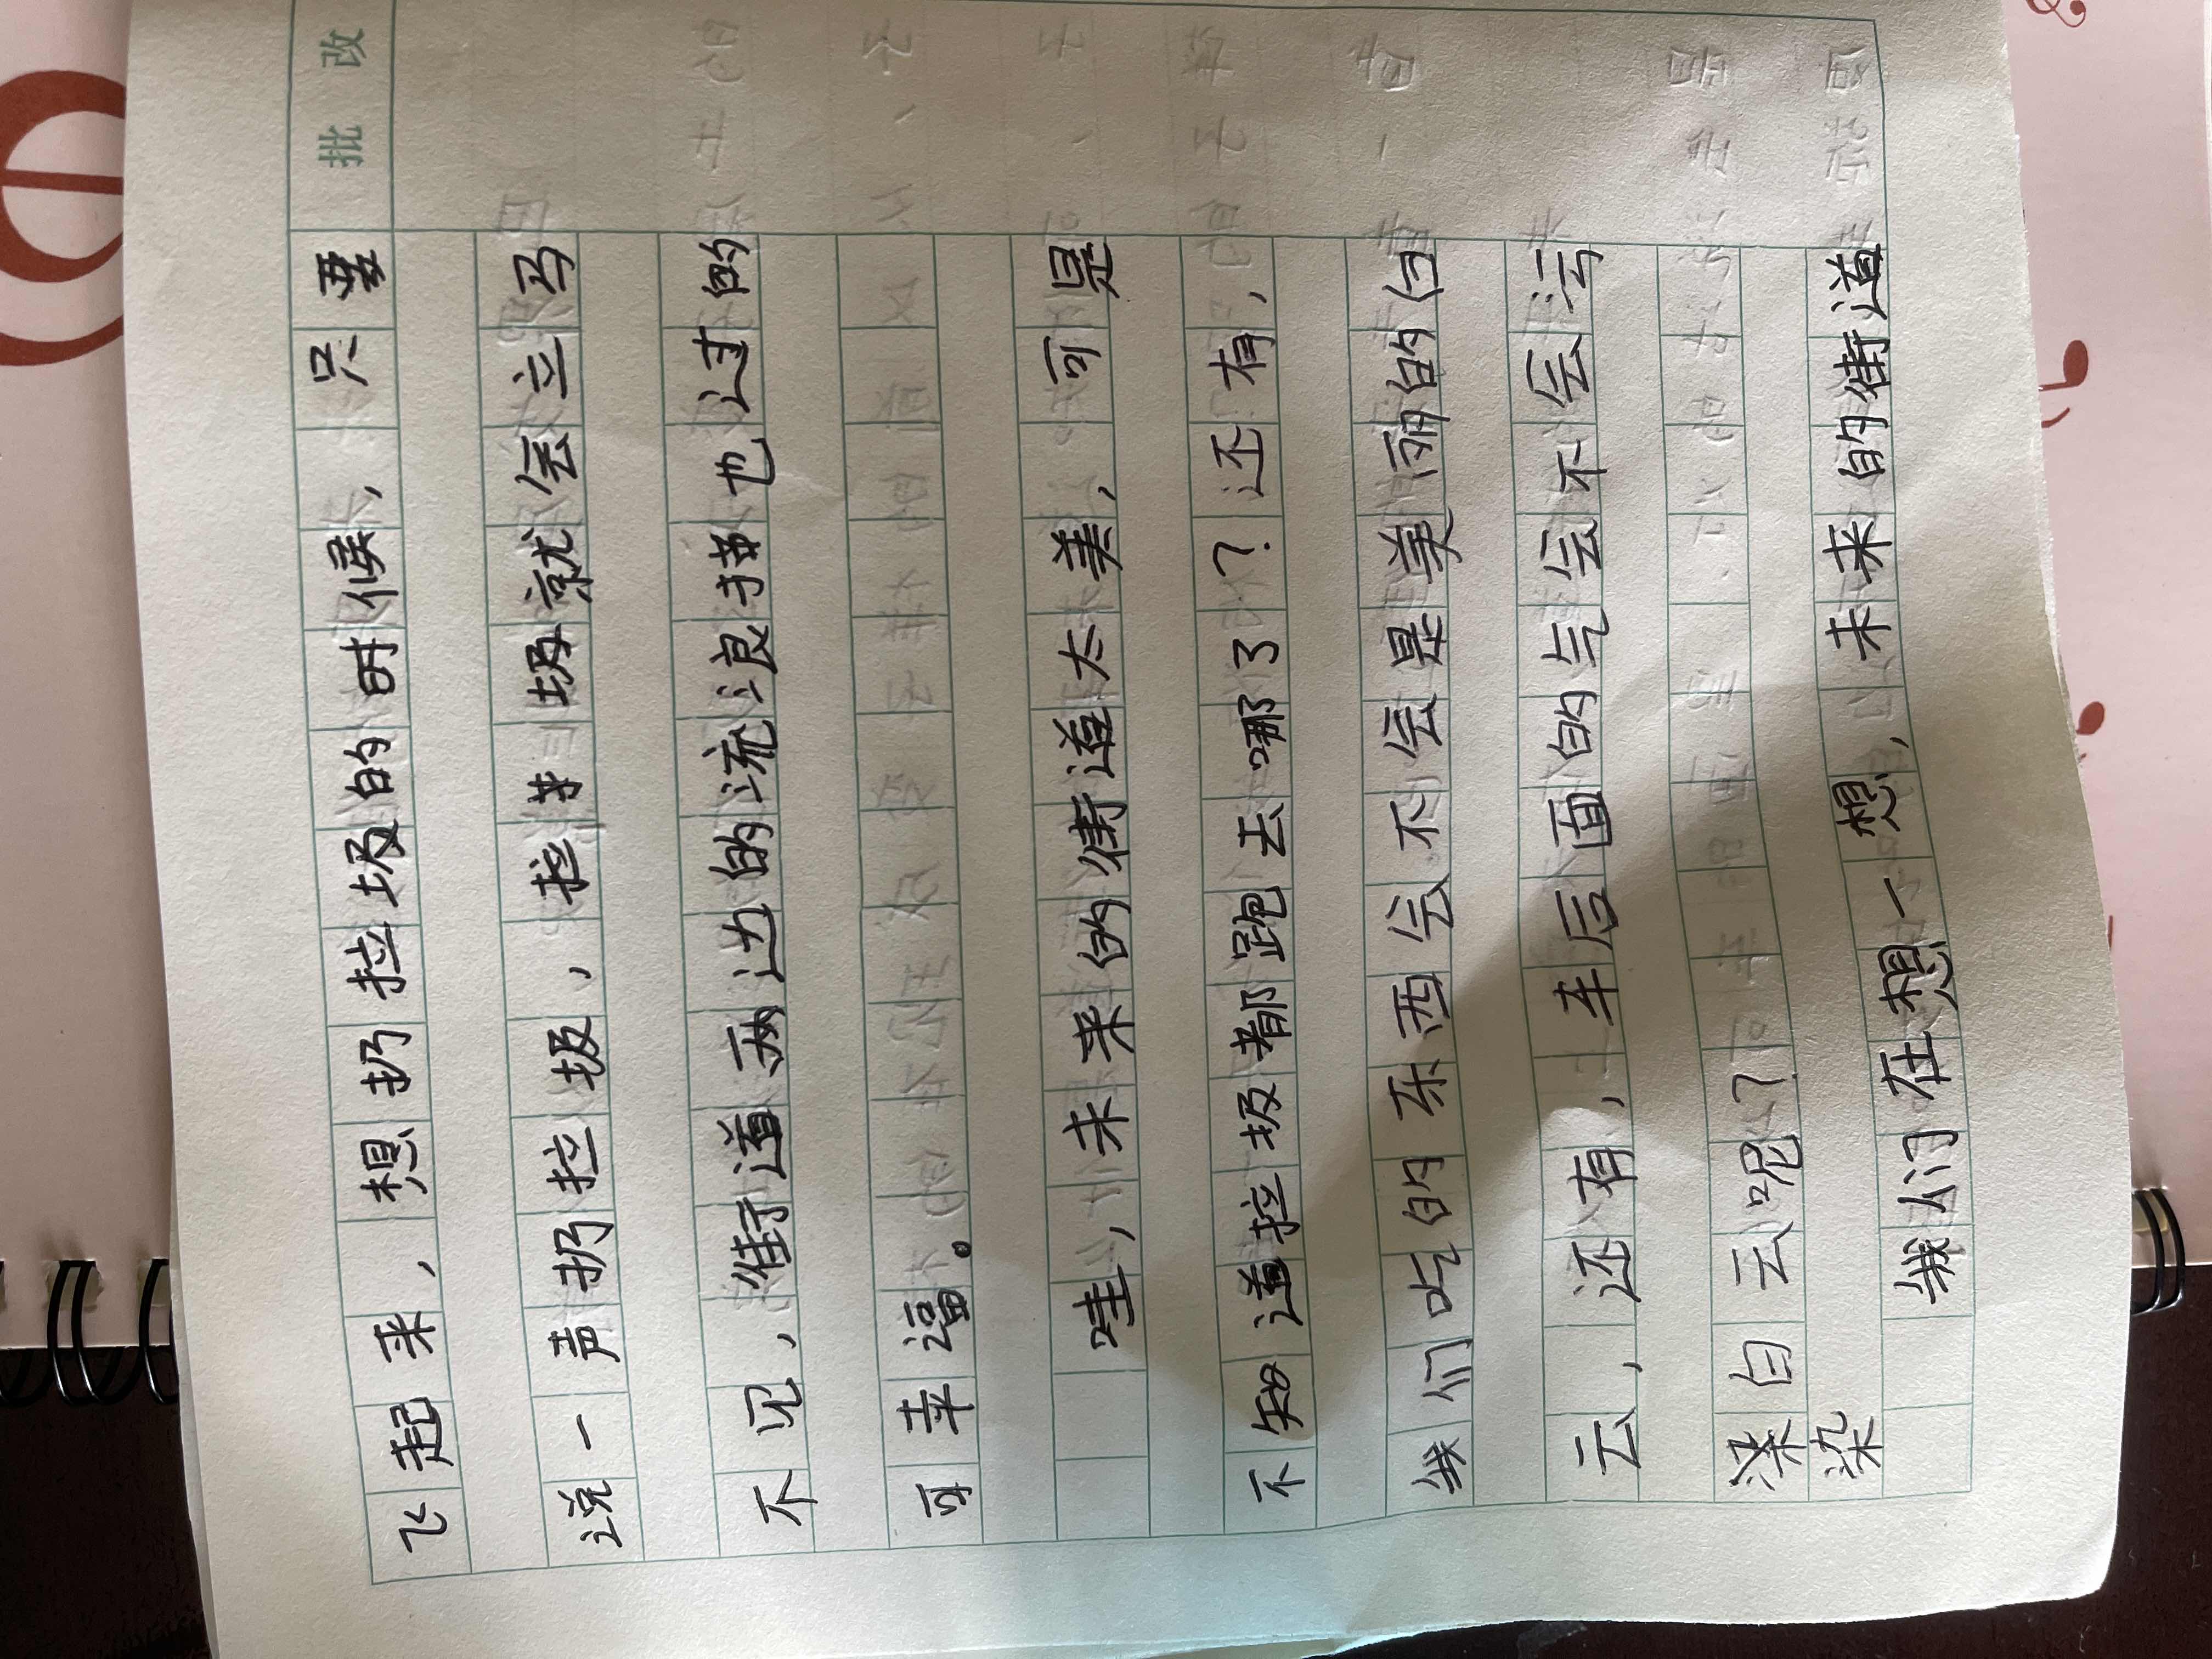 批改
飞起来，想扔拉圾的时候，只要
说一声扔拉圾，拉圾就会立马
不见，街道两边的流浪猫也过的
可幸福。
哇，未来的街道太美，可是
不知道拉圾都跑去哪了？还有，
我们吃的东西会不会是美丽的白
云，还有，车后面的气会不会污
染白云呢？
染
我们在想一想，未来的街道